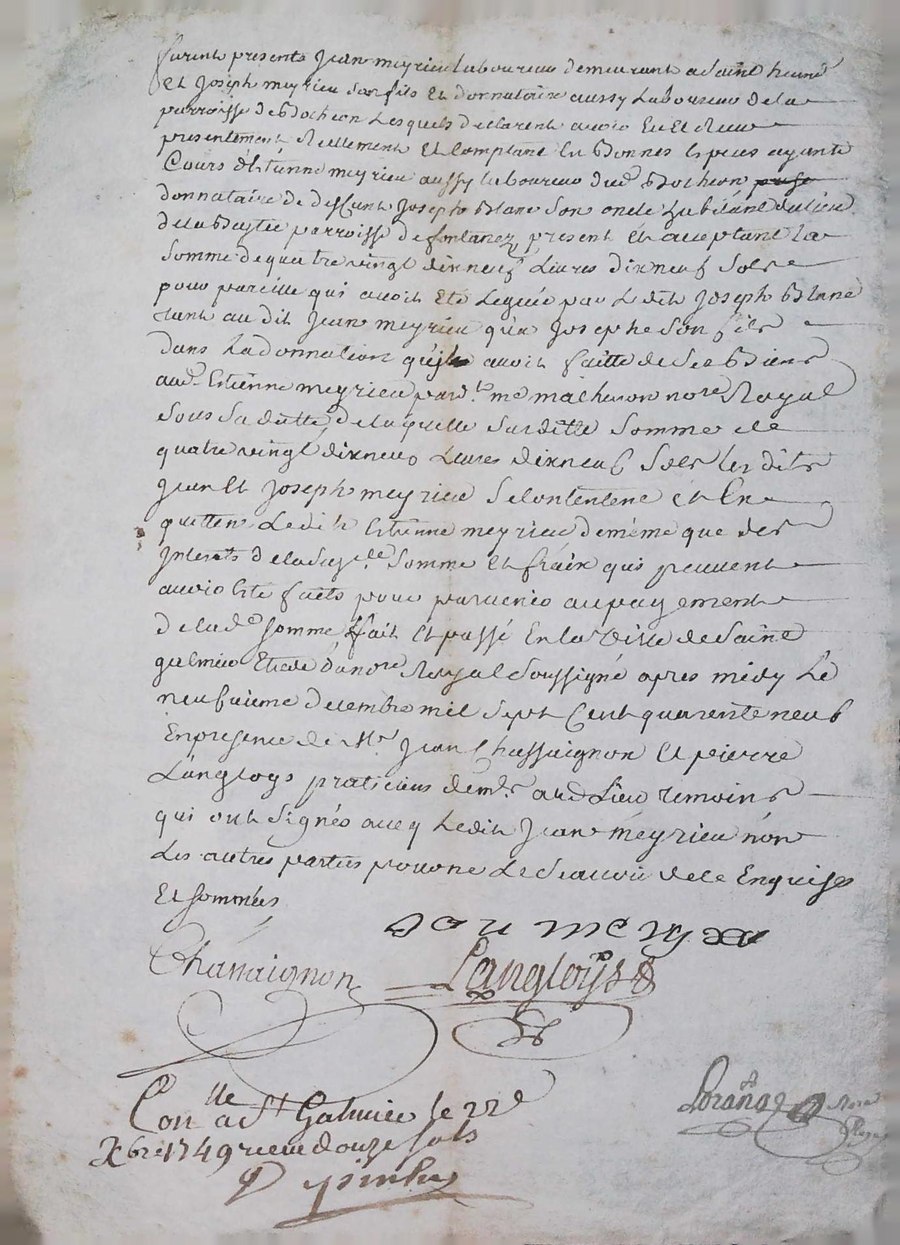 furent presents Jean meyrieu laboureur demeurant a Saint
et Joseph meyrieu son fils et donnataire aussy laboureur de la
parroisse de Rocheon Lesquels declarent avoir eu et Receu
presentement Reellement et comptant en Bonnes Especes ayants
Cours d'Etienne meyrieu aussy laboureur dud Rocheon
donnataire de deffunt Joseph Blanc son oncle habitant du lieu
de la parroisse de fontanez present et aceptant la
Somme de quatre vingt dixneuf Livres dixneuf Sols
pour pareille qui avoit eté Leguée par Ledit Joseph Blanc
tant au dit Jean meyrieu qu'a Josephe Son fils
dans La donnation avoit faitte de Ses Biens
aud. Etienne meyrieu pard.t me matheron nore Royal
Sous Sa datte, de laquelle Surditte Somme de
quatre vingt dixneuf Livres dixneuf Sols les dits
Jean Et Joseph meyrieu Se contentent et En
quitten Ledit Etienne meyrieu de méme que des
Interets de la Somme et fraix qui peuvent
avoir été faits pour parvenir au payement
de lad. somme ffait et passé En la ville de Saint
galmier Etude du nore Royal Soussigné apres midy Le
neufvieme decembre mil Sept Cent quarente neuf
En presence de Mr Jean Chassaignon et pierre
Langloys praticiens dem.ts aud Lieu temoins
qui ont Signés avecq Ledit Jean meyrieu non
Les autres parties pour ne Le Scavoir de ce Enquises
Et Sommées
Jou meyrieu
Chassaignon Langloys
Con.lle a St Galmier le 22e
Xbre 1749 receu douze sols
nore